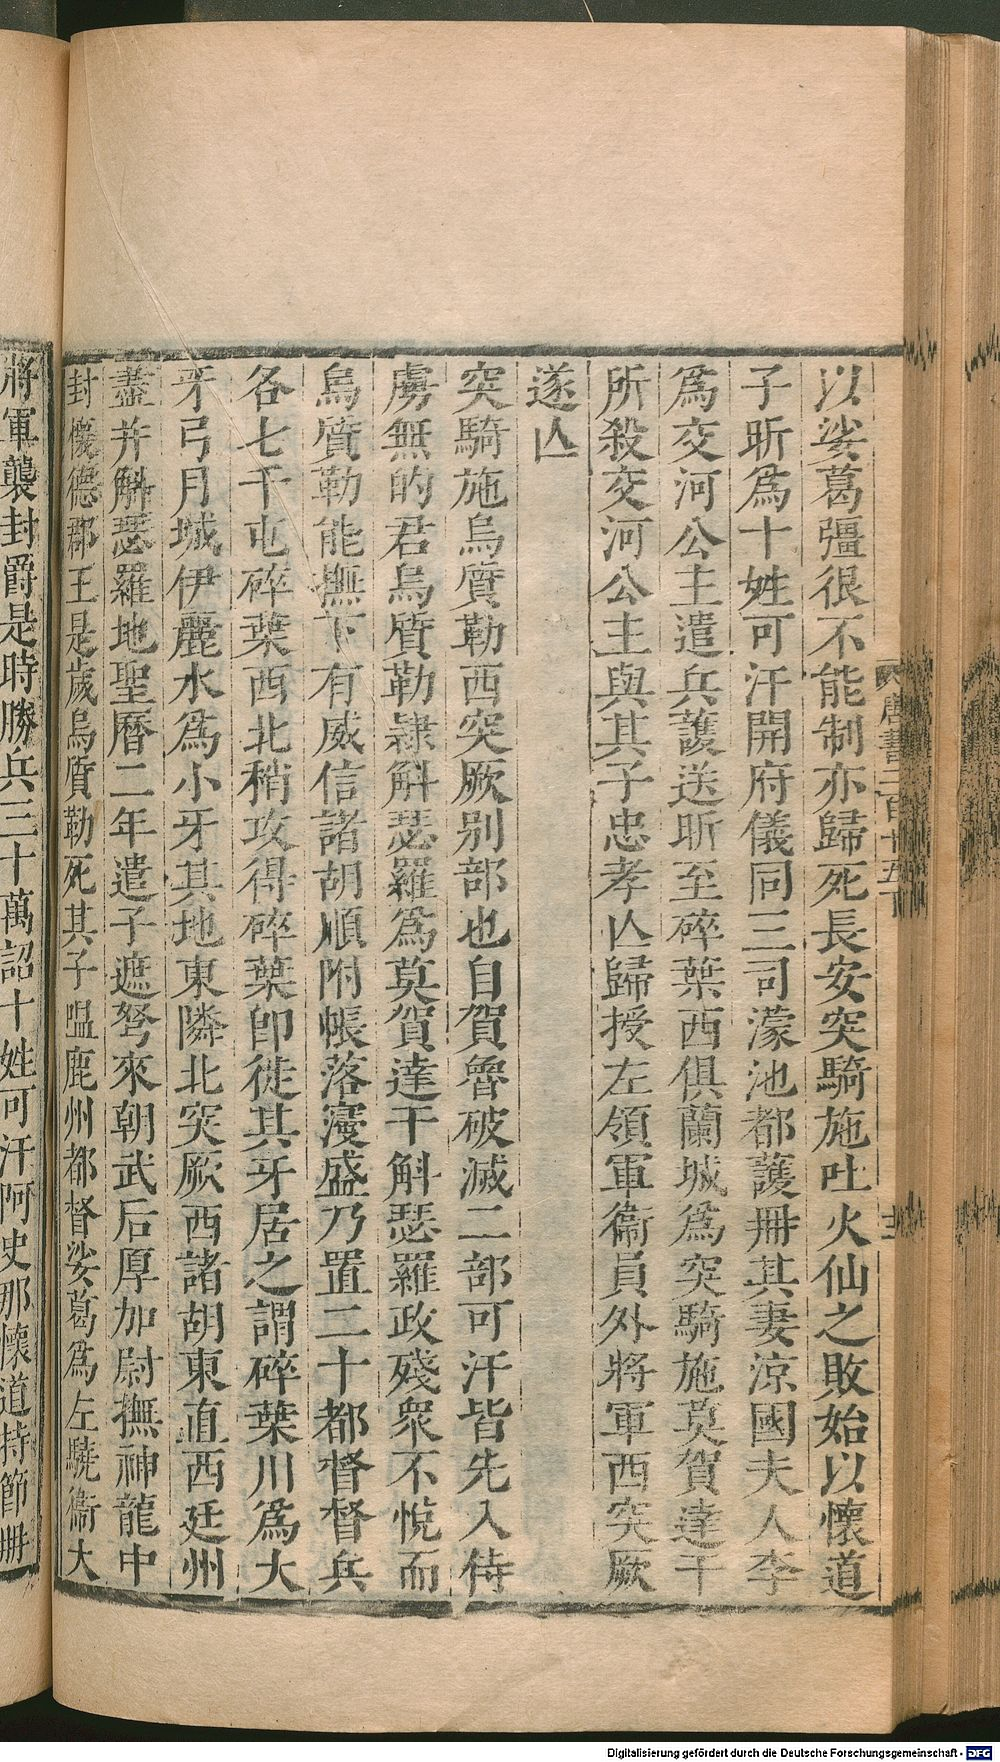 以娑葛彊很不能制亦歸死長安突騎施吐火仙之敗始以懷道
子昕爲十姓可汗開府儀同三司濛池都護冊其妻涼國夫人李
爲交河公主遣兵護送昕至碎葉西俱蘭城爲突騎施莫賀達干
所殺交河公主與其子忠孝亾歸授左領軍衞員外將軍西突厥
遂亾
突騎施烏質勒西突厥别部也自賀魯破滅二部可汗皆先入侍
虜無的君烏質勒隷斛瑟羅爲莫賀達干斛瑟羅政殘衆不悅而
烏質勒能撫下有威信諸胡順附帳落寖盛乃置二十都督督兵
各七千屯碎葉西北稍攻得碎葉卽徙其牙居之謂碎葉川爲大
牙弓月城伊麗水爲小牙其地東隣北突厥西諸胡東直西廷州
盡幷斛瑟羅地聖曆二年遣子遮弩來朝武后厚加尉撫神龍中
封懷德郡王是歲烏質勒死其子嗢鹿州都督娑葛爲左驍衞大
將軍襲封爵是時勝兵三十萬詔十姓可汗阿史那懷道持節冊
唐書二百十五下
Digitalisierung gefördert durch die Deutsche Forschungsgemeinschaft - DFG